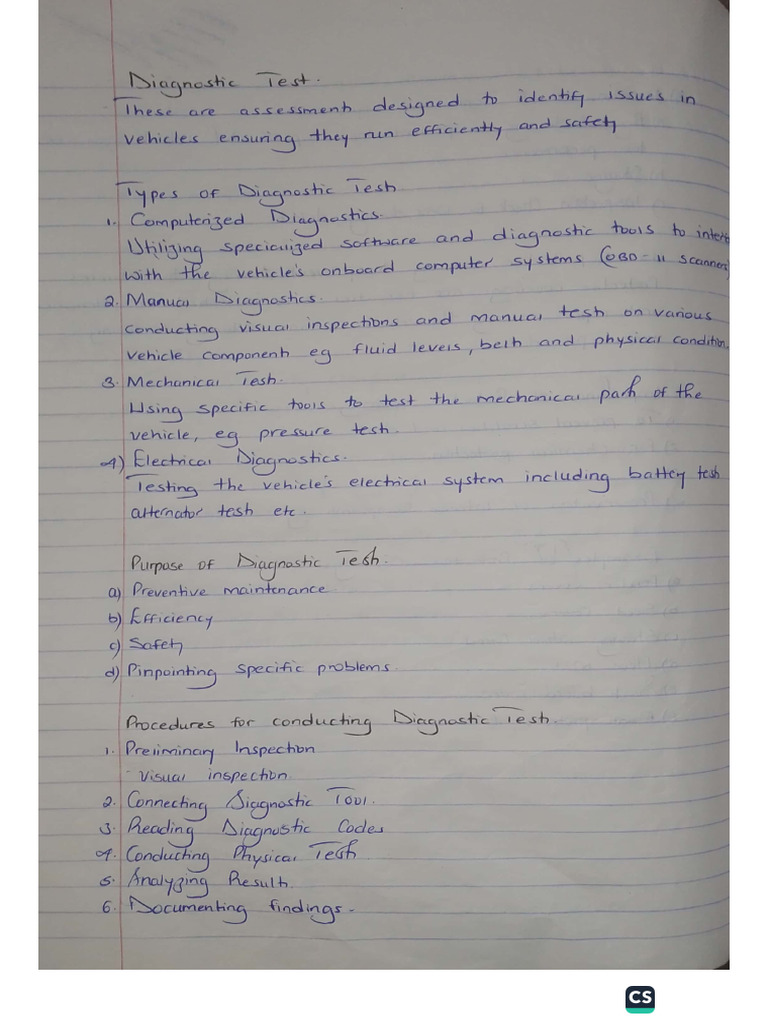 Diagnostic Test.
These are assessments designed to identify issues in
vehicles ensuring they run efficiently and safety
Types of Diagnostic Tests
1. Computerized Diagnostics.
Utilizing specialized software and diagnostic tools to
with the vehicle's onboard computer systems (OBD-II scanners)
2. Manual Diagnostics.
conducting visual inspections and manual tests on various
vehicle components eg fluid levels, belts and physical condition.
3. Mechanical Tests.
Using specific tools to test the mechanical parts of the
vehicle, eg pressure tests.
4) Electrical Diagnostics.
Testing the vehicle's electrical system including battery tests
alternator tests etc.
Purpose of Diagnostic Tests.
a) Preventive maintenance
b) Efficiency
c) Safety
d) Pinpointing specific problems.
Procedures for conducting Diagnostic Tests.
1. Preliminary Inspection
- Visual inspection.
2. Connecting Diagnostic Tool.
3. Reading Diagnostic Codes
4. Conducting Physical Tests.
5. Analyzing Results.
6. Documenting findings.
CS